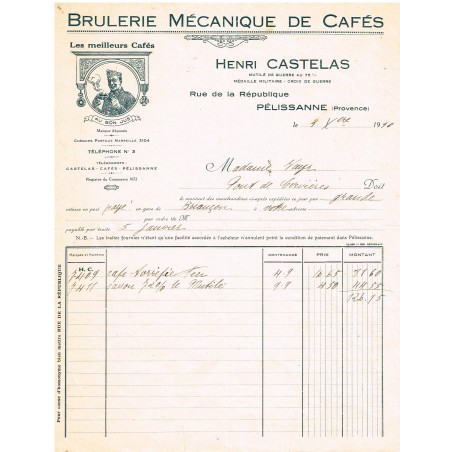 BRULERIE MÉCANIQUE DE CAFÉS
Les meilleurs Cafés
AU BON JUS
Marque déposée
CHÈQUES POSTAUX MARSEILLE 3104
TÉLÉPHONE N° 3
TÉLÉGRAMMES :
CASTELAS-CAFÉS-PÉLISSANNE
Registre du Commerce
HENRI CASTELAS
MUTILÉ DE GUERRE AU 75 %
MÉDAILLE MILITAIRE - CROIX DE GUERRE
Rue de la République
PÉLISSANNE (Provence)
le 9 Xbre 1930
Madame
Pont de Doit
le montant des marchandises ci-après expédiées ce jour par grande
vitesse en port payé en gare de Briançon à votre adresse
par ordre de
payable par traite 5 Janvier
N.-B. - Les traites fournies n'étant qu'une facilité accordée à l'acheteur n'annulent point la condition de paiement dans Pélissanne.
Marques et Numéros
CONTENANCE
PRIX
MONTANT
H. C.
7409 café torréfié 4.9 16.65
7411 savon 72% le Mutilé 9.9 4.50 44.55
126.15
Pour cause d'homonyme bien mettre RUE DE LA RÉPUBLIQUE